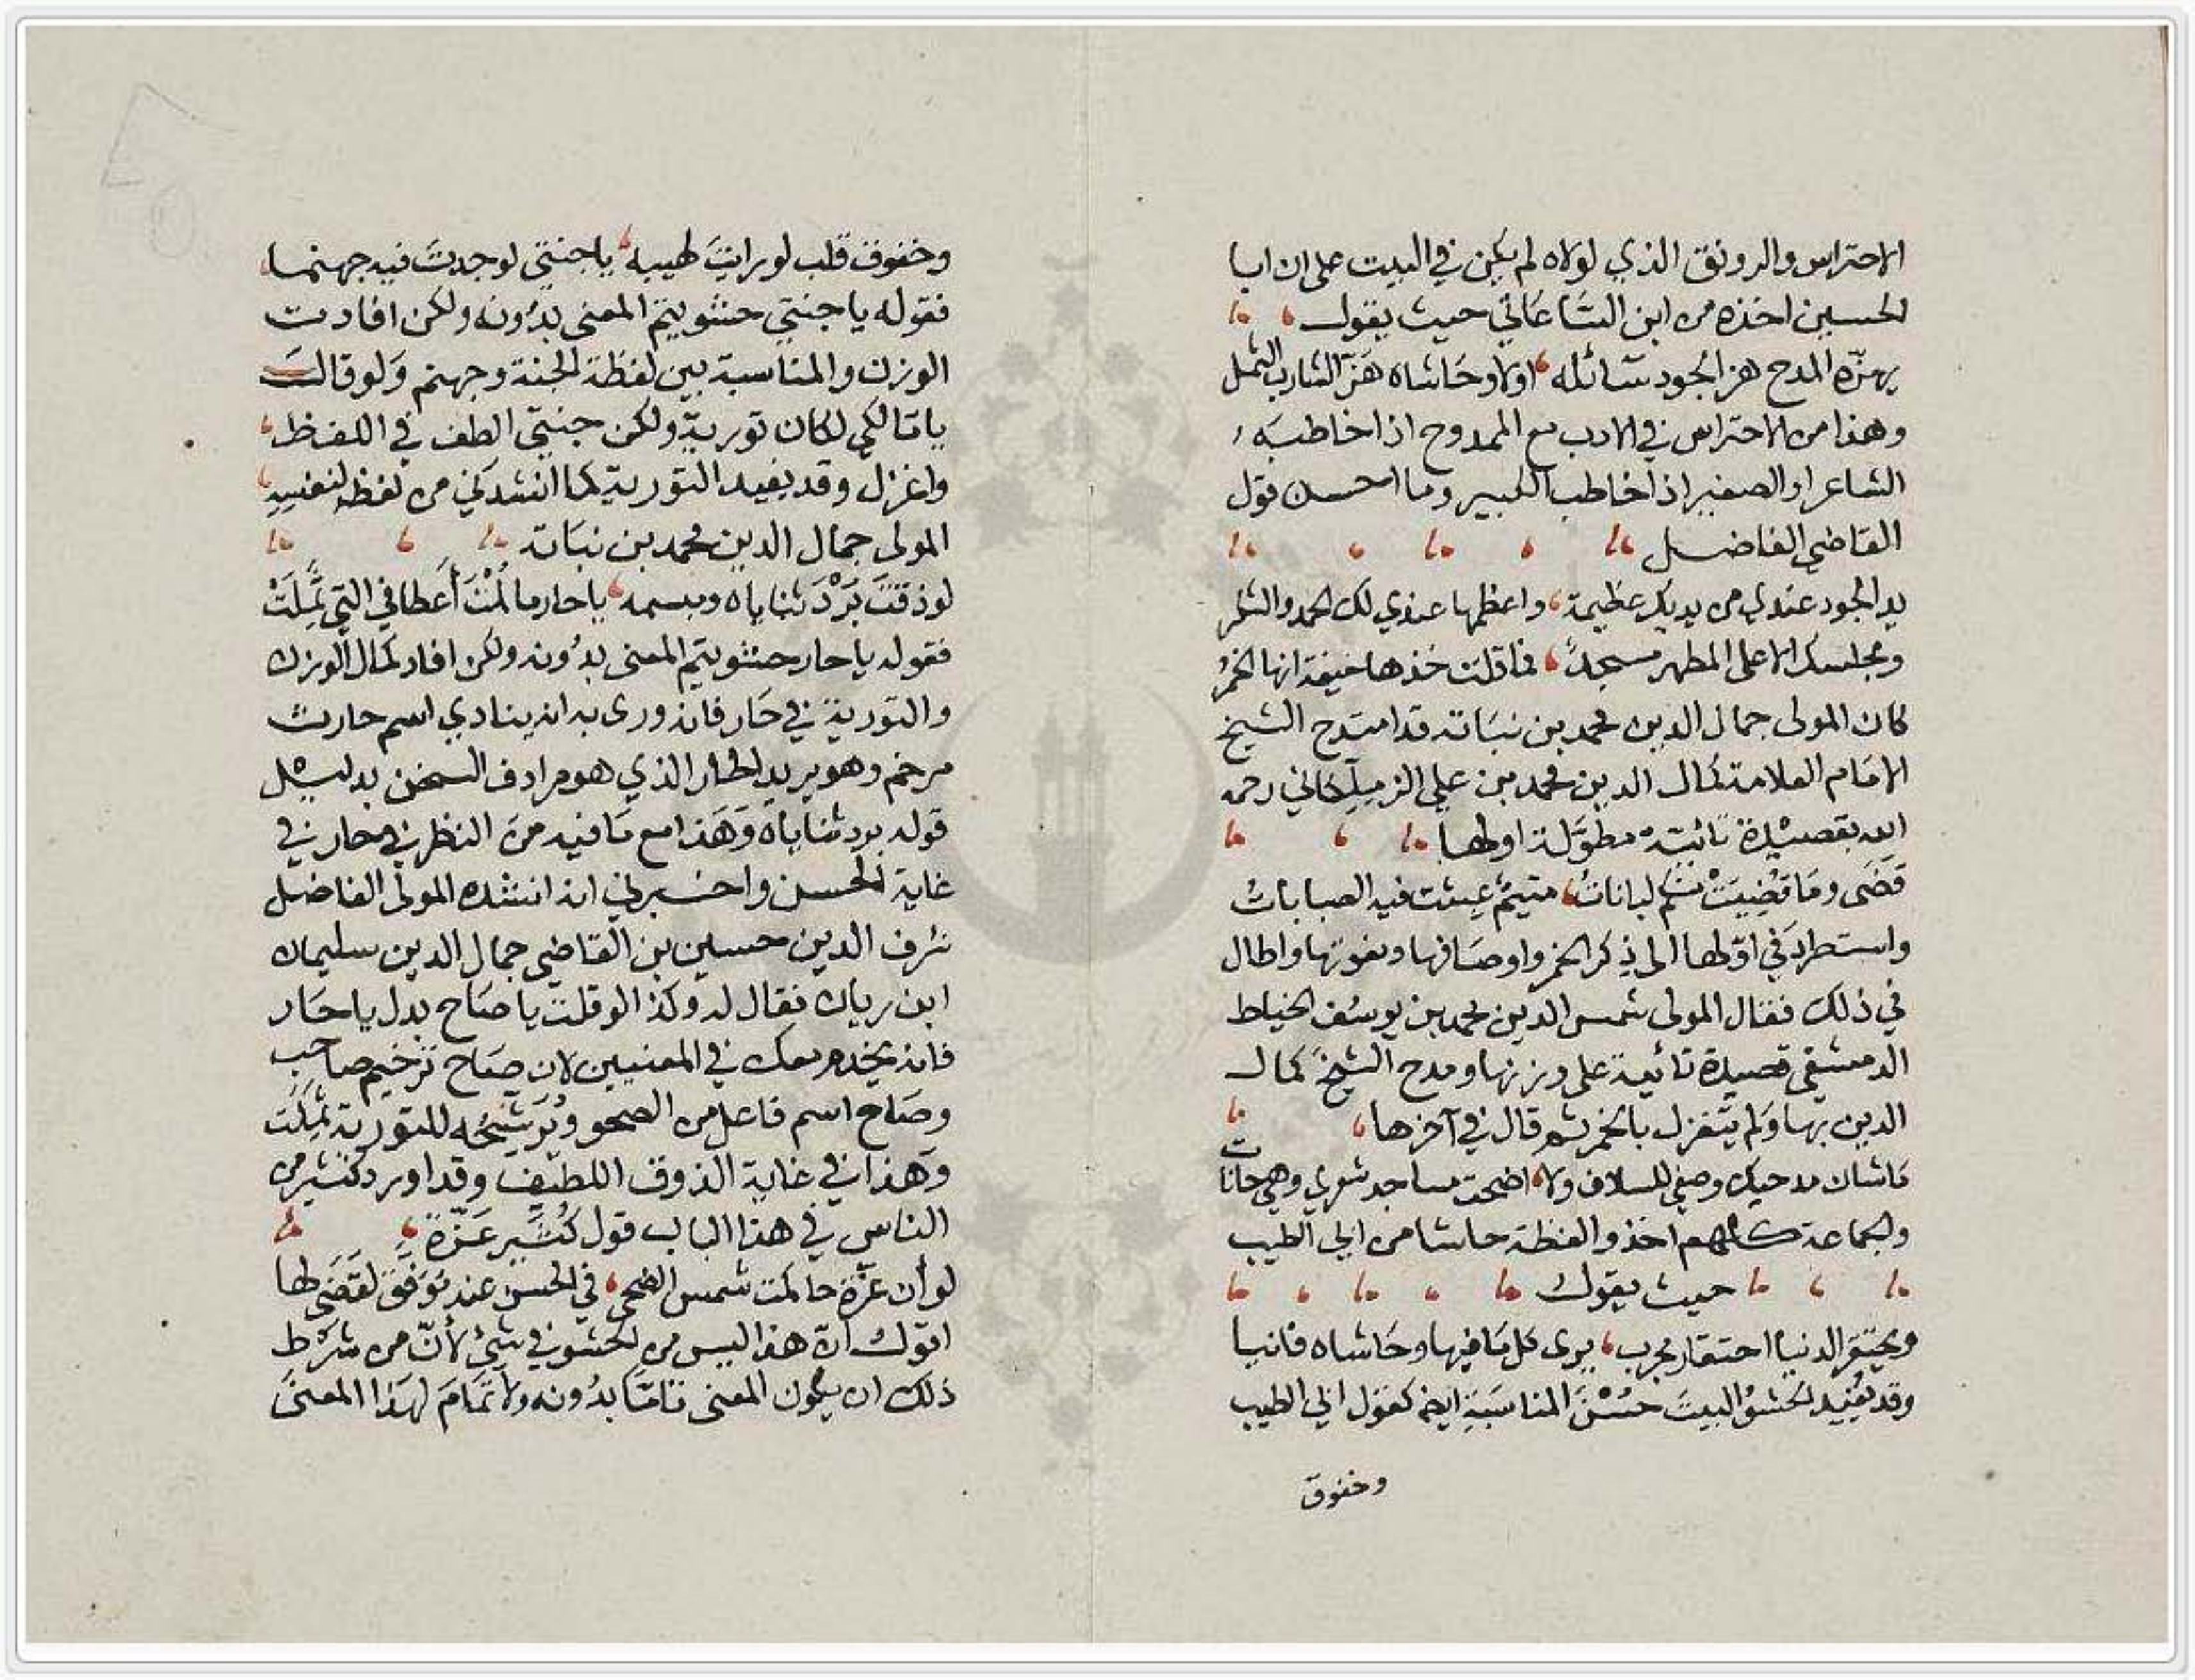 الاحتراس والرونق الذي لولاه لم يكن في البيت على ان ابا
الحسين اخذه من ابن الساعاتي حيث يقول
يهزه المدح هز الجود سائله اولا وحاشاه هز الشارب الثمل
وهذا من الاحتراس في الادب مع الممدوح اذا خاطبه
الشاعر او الصغير اذا خاطب الكبير وما احسن قول
القاضي الفاضل
يد الجود عندي من يديك عظيمة واعظمها عندي لك الحمد والشكر
ومجلسك الاعلى المطهر مسجد فما قلت خذها خيفة انها الخمر
كان المولى جمال الدين محمد بن نباته قد امتدح الشيخ
الامام العلامة كمال الدين محمد بن علي الزملكاني رحمه
الله بقصيدة تائية مطوّلة اولها
قَضَى ومَا قُضِيَتْ منكم لباناتُ متيم عبثت فيه الصبابات
واستطرد في اوّلها الى ذكر الخمر واوصافها ونعوتها واطال
في ذلك فقال المولى شمس الدين محمد بن يوسف الخياط
الدمشقي قصيدة تائية على وزنها ومدح الشيخ كمال
الدين بها ولم يتغزل بالخمر ثم قال في آخرها
ماشان مدحيك وصفي للسلاف ولا اضحت مساجد شعري وهي حانات
والجماعة كلهم اخذوا لفظة حاشا من ابي الطيب
حيث يقول
ويحتقر الدنيا احتقار مجرب يرى كل ما فيها وحاشاه فانيا
وقد يُفيد الحشوُ البيتَ حُسْنَ المناسَبَةِ ايضا كقول ابي الطيب
وخفوق
وخفوق قلب لو رايتَ لهيبه ياجنتي لوجدتَ فيه جهنما
فقوله ياجنتي حشو يتم المعنى بدُونه ولكن افادت
الوزن والمناسبة بين لفظة الجنة وجهنم ولو قالت
يامالكي لكان تورية ولكن جنتي الطف في اللفظ
واغزل وقد يفيد التورية كما انشدني من لفظه لنفسِهِ
المولى جمال الدين محمد بن نباته
لو ذقتَ بَرْدَ ثناياه ومبسمه ياحار ما لُمْتَ أعطافي التي ثَمِلَتْ
فقوله ياحار حشو يتم المعنى بدُونه ولكن افاد كمال الوزن
والتورية في حَار فانه ورى به انه ينادي اسم حارث
مرخم وهو يريد الحار الذي هو مرادف السخن بدليل
قوله برد ثناياه وَهَذا مع مَا فيه من النظر في حار في
غاية الحسن واخبرني انه انشده المولى الفاضل
شرف الدين حسين بن القاضي جمال الدين سليمان
ابن ريان فقال له وكذا لو قلت ياصاح بدل ياحار
فانه يخدم معك في المعنيين لان صاح ترخيم صاحب
وصَاح اسم فاعل من الصحو وتُرشحُه للتورية ثَمِلَتْ
وهذا في غاية الذوق اللطيف وقد اورد كثير من
الناس في هذا الباب قول كُثَيِّر عَزّة
لو أن عَزّة حاكمت شمس الضحى في الحسن عند مُوَفَّق لقَضَى لها
اقول ان هذا ليس من الحشو في شيْ لأنّ من شرْط
ذلك ان يكون المعنى تامّاً بدُونه ولا تمَامَ لهذا المعنى